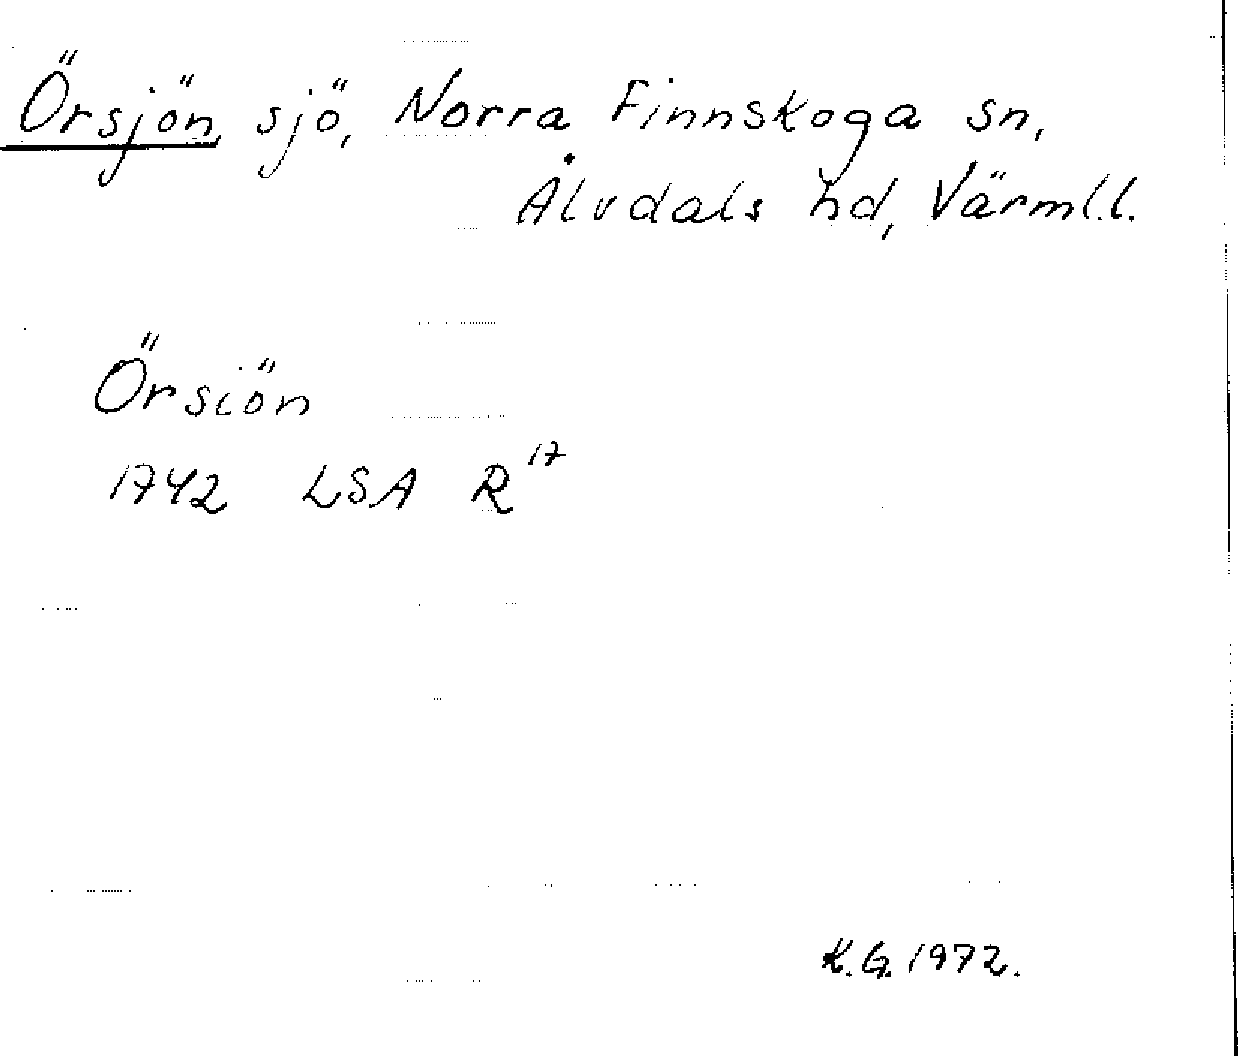 Örsjön, sjö, Norra Finnskoga sn,
Älvdals hd, Värml.l.
Örsiön
1742 LSA R¹⁷
K.G. 1972.